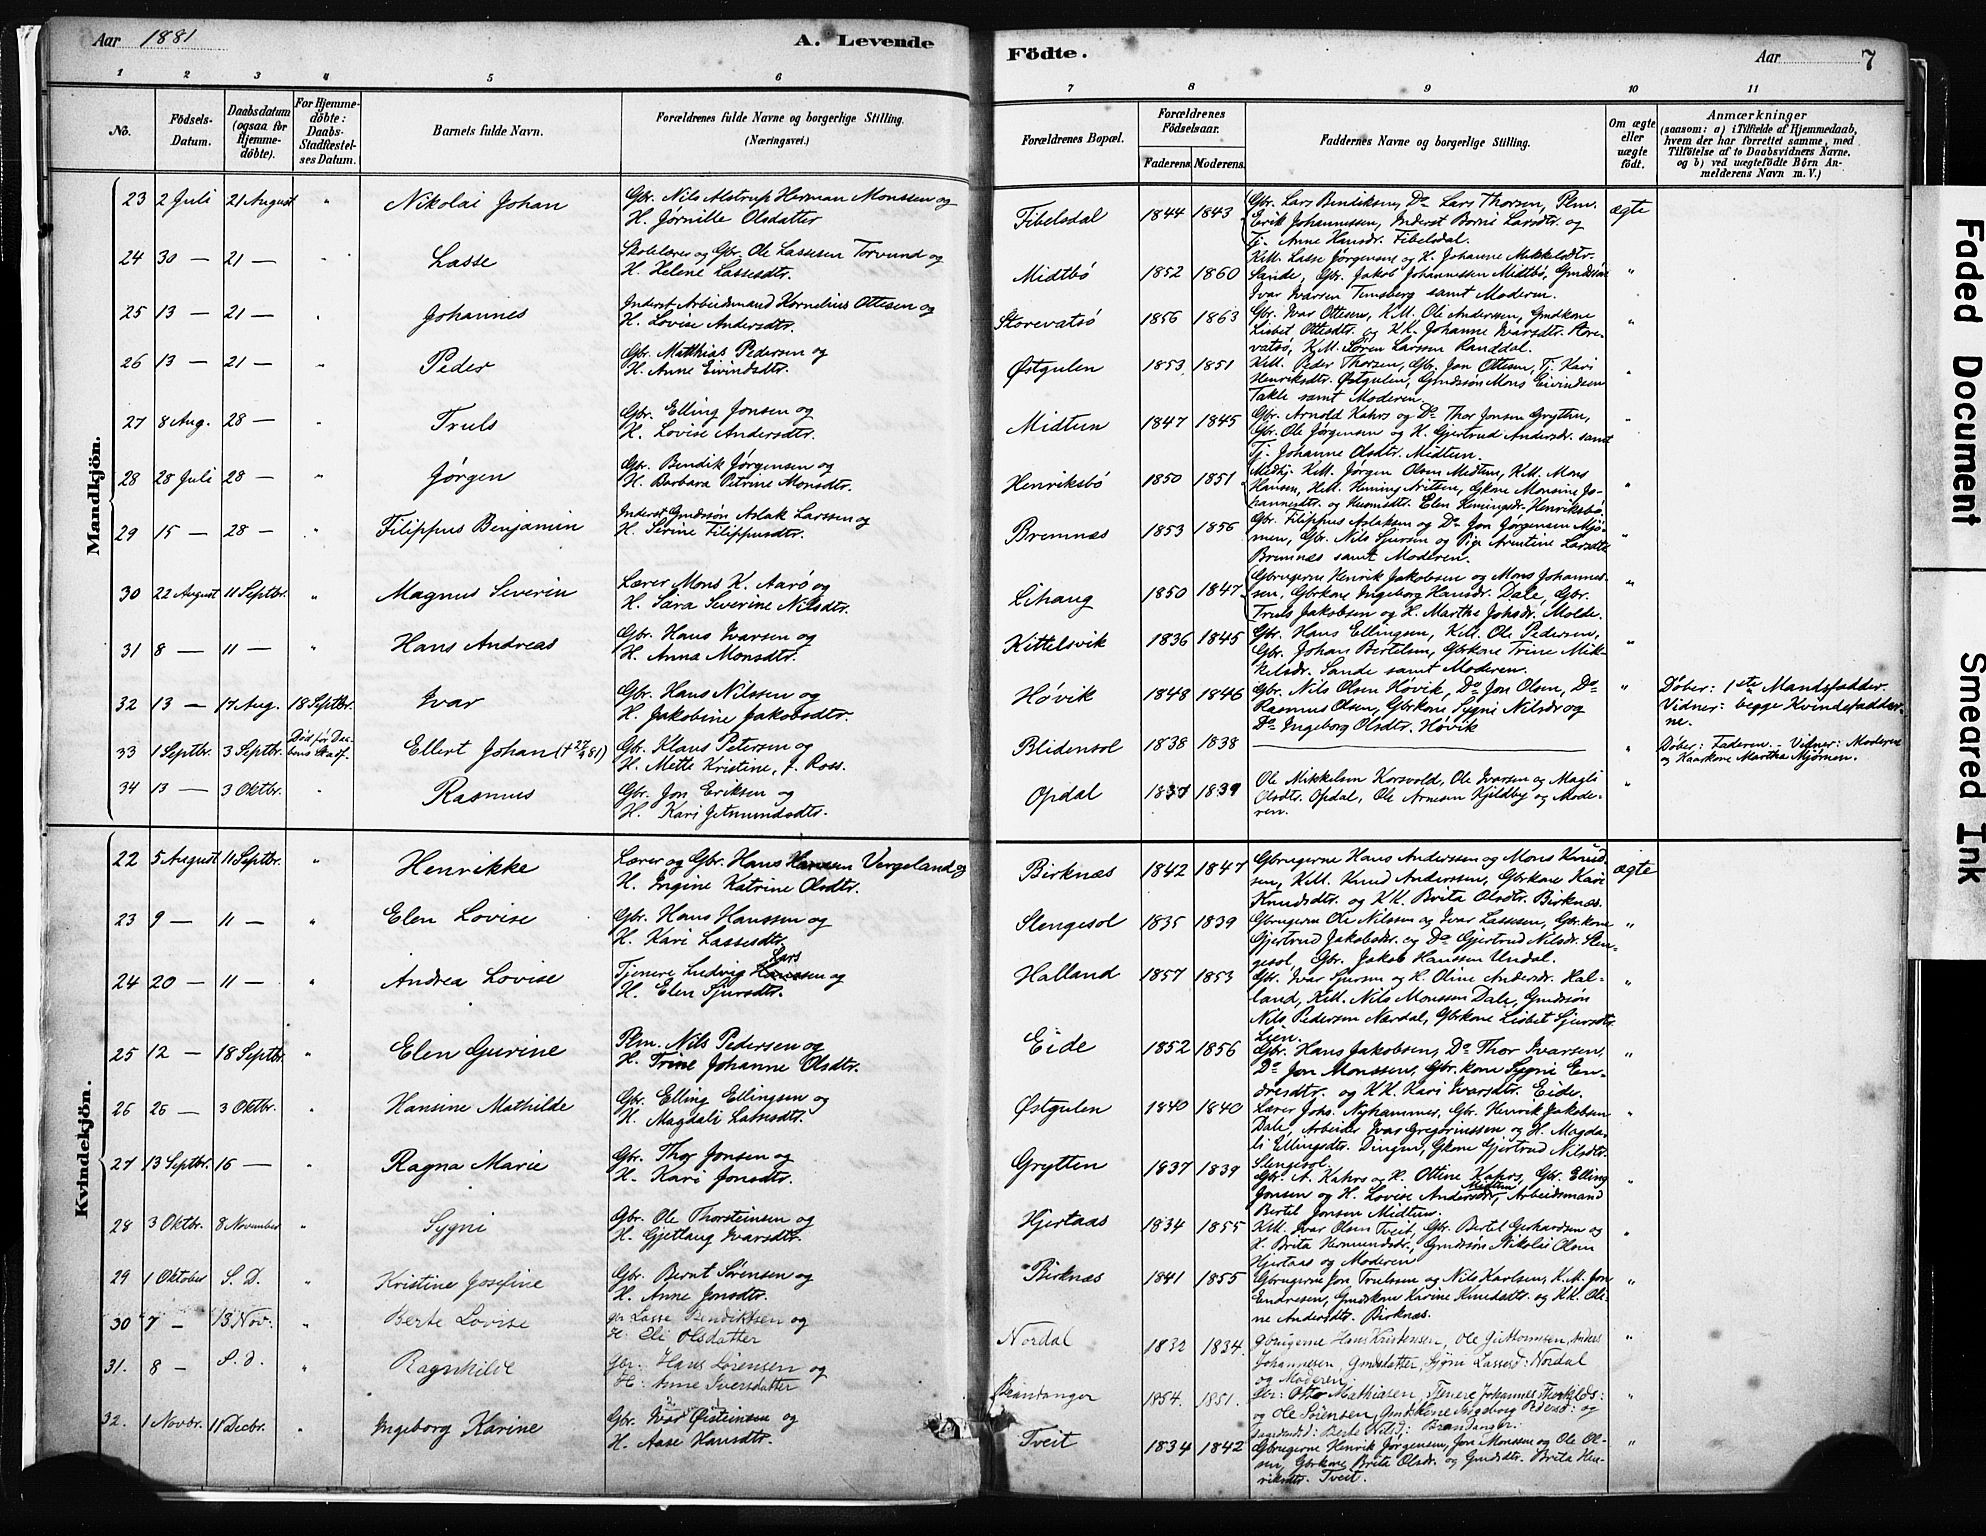 Aar 1881
A. Levende
Födte.
Aar
7
1 2 3 4 5 6 7 8 9 10 11
No.
Födsels-
Datum.
Daabsdatum
(ogsaa for
Hjemme-
döbte).
For Hjemme-
döbte:
Daabs-
Stadfæstel-
ses Datum.
Barnets fulde Navn.
Forældrenes fulde Navne og borgerlige Stilling.
(Næringsvei.)
Forældrenes Bopæl.
Forældrenes
Födselsaar.
Faderens. Moderens.
Faddernes Navne og borgerlige Stilling.
Om ægte
eller
uægte
födt.
Anmærkninger
(saasom: a) i Tilfælde af Hjemmedaab,
hvem der har forrettet samme, med
Tilföielse af to Daabsvidners Navne,
og b) ved uægtefödte Börn An-
melderens Navn m. V.)
Mandkjön.
23 2 Juli 21 August " Nikolai Johan
Gbr. Nils Alstrup Herman Monssen og
H. Jørnille Olsdatter
Tibelsdal 1844 1843
Gbr. Lars Bendiksen, Do Lars Thorsen, Plm.
Erik Johannessen, Inderst Borni Larsdtr. og
Tj. Anne Hansdr. Tibelsdal.
ægte
24 30 — 21 — " Lasse
Skolelærer og Gbr. Ole Lassesen Torvund og
H. Helene Lassesdtr.
Midtbö 1852 1860
KM. Lasse Jørgensen og H. Johanne Mikkelsdtr.
Sande, Gbr. Jakob Johannessen Midtbö, Gmdssön
Ivar Ivarsen Tunsberg samt Moderen.
"
25 13 — 21 — " Johannes
Inderst Arbeidsmand Kornelius Ottesen og
H. Lovise Andersdtr.
Storevatsö 1856 1863
Gbr. Ivar Ottesen, KM. Ole Anderssen, Gmdkone
Lisbet Ottesdtr. og KK. Johanne Ivarsdtr. Store-
vatsö, KM. Sören Larssen Randdal.
"
26 13 — 21 — " Peder
Gbr. Matthias Pedersen og
H. Anne Eivindsdtr.
Østgulen 1853 1851
KM. Peder Thorsen, Gbr. Jon Ottesen, Tj. Kari
Henriksdtr. Østgulen, Gmdssön Mons Eivindsen
Takle samt Moderen.
"
27 8 Aug. 28 — " Truls
Gbr. Elling Jonsen og
H. Lovise Andersdtr.
Midtun 1847 1845
Gbr. Arnold Kahrs og Do Thor Jonsen Grytten,
Gbr. Ole Jørgensen og H. Gjertrud Andersdr. samt
Tj. Johanne Olsdtr. Midtun.
"
28 28 Juli 28 — " Jørgen
Gbr. Bendik Jørgensen og
H. Barbara Petrine Monsdtr.
Henriksbö 1850 1851
Medhj. KM. Jørgen Olsen Midtun, KM. Mons
Hansen, KM. Heming Nilsen, Gkone Monsine Jo-
hannesdtr. og Husmdtr. Elen Hemingsdr. Henriksbö.
"
29 15 — 28 — " Filippus Benjamin
Inderst Gmdssön Aslak Larssen og
H. Serine Filippusdtr.
Bremnæs 1853 1856
Gbr. Filippus Aslaksen og Do Jon Jørgensen Mjö-
men, Gbr. Nils Sjursen og Pige Arntine Larsdtr.
Bremnæs samt Moderen.
"
30 22 August 11 Septbr. " Magnus Severin
Lærer Mons K. Aarö og
H. Sara Severine Nilsdtr.
Lihaug 1850 1847
Gbrugerne Henrik Jakobsen og Mons Johannes-
sen, Gbrkone Ingeborg Hansdr. Dale, Gbr.
Truls Jakobsen og H. Martha Johsdr. Molde.
"
31 8 — 11 — " Hans Andreas
Gbr. Hans Ivarsen og
H. Anna Monsdtr.
Kittelsvik 1836 1845
Gbr. Hans Ellingsen, KM. Ole Pedersen,
Gbr. Johan Bertelsen, Gbrkone Trine Mik-
kelsdr. Sande samt Moderen.
"
32 13 — 17 Aug. 18 Septbr. Ivar
Gbr. Hans Nilssen og
H. Jakobine Jakobsdtr.
Hövik 1848 1846
Gbr. Nils Olsen Hövik, Do Jon Olsen, Do
Rasmus Olsen, Gbrkone Sygni Nilsdr og
Do Ingeborg Olsdtr. Hövik
"
Döber: 1ste Mandsfadder.
Vidner: begge Kvindefadder-
ne.
33 1 Septbr. 3 Septbr. Död før Daa-
bens Stadf. Ellert Johan († 27/9 81)
Gbr. Klaus Petersen og
H. Mette Kristine, f. Ross.
Blidensol 1838 1838
"
Döber: Faderen. – Vidner: Moderen
og Kaarkone Martha Mjömen.
34 13 — 3 Oktbr. " Rasmus
Gbr. Jon Eriksen og
H. Kari Jetmundsdtr.
Opdal 1837 1839
Ole Mikkelsen Korsvold, Ole Ivarsen og Magli
Olsdtr. Opdal, Ole Arnesen Kjeldby og Mode-
ren.
"
Kvindekjön.
22 5 August 11 Septbr. " Henrikke
Lærer og Gbr. Hans Hansen Vergeland og
H. Engine Katrine Olsdtr.
Birknæs 1842 1847
Gbrugerne Hans Anderssen og Mons Knud-
sen, KM. Knud Anderssen, Gbrkone Kari
Knudsdtr. og KK. Brita Olsdtr. Birknæs.
ægte
23 9 — 11 — " Elen Lovise
Gbr. Hans Hanssen og
H. Kari Lassesdtr.
Slengesol 1835 1839
Gbrugerne Ole Nilssen og Ivar Lassesen, Gbrkone
Gjertrud Jakobsdr. og Do Gjertrud Nilsdr. Slen-
gesol, Gbr. Jakob Hanssen Undal.
"
24 20 — 11 — " Andrea Lovise
Lars
Tjenere Ludvig Hanssen og
H. Elen Sjursdtr.
Halland 1857 1853
Gbr. Ivar Sjursen og H. Oline Andersdr. Hal-
land, KM. Nils Monssen Dale, Gmdssön
Nils Pedersen Nærdal, Gbrkone Lisbet Sjursdtr.
Lien.
"
25 12 — 18 Septbr. " Elen Gurine
Plm. Nils Pedersen og
H. Trine Johanne Olsdtr.
Eide 1852 1856
Gbr. Hans Jakobsen, Do Thor Ivarsen,
Do Jon Monssen, Gbrkone Sygni En-
dresdtr. og KK. Kari Ivarsdtr. Eide.
"
26 26 — 3 Oktbr. " Hansine Mathilde
Gbr. Elling Ellingsen og
H. Magdali Lassesdtr.
Østgulen 1840 1840
Lærer Johs. Nyhammer, Gbr. Henrik Jakobsen
Dale, Arbeider Ivar Gregoriussen og H. Magda-
li Ellingsdtr. Dingen, Gkone Gjertrud Nilsdtr.
Slengesol.
"
27 13 Septbr. 16 — " Ragna Marie
Gbr. Thor Jonsen og
H. Kari Jonsdtr.
Grytten 1837 1839
Gbr. A. Kahrs og H. Ottine Kahrs, Gbr. Elling
Midtun
Jonsen og H. Lovise Andersdr, Arbeidsmand
Bertil Jonsen Midtun.
"
28 3 Oktbr. 8 November " Sygni
Gbr. Ole Thorsteinsen og
H. Gjetlaug Ivarsdtr.
Hjertaas 1834 1855
KM. Ivar Olsen Tveit, Gbr. Bertil Gerhardsen og
H. Brita Hermundsdr., Gmdssön Nikolai Olsen
Hjertaas og Moderen
"
29 1 Oktober S. D. " Kristine Josefine
Gbr. Bernt Sörensen og
H. Anne Jonsdtr.
Birknæs 1841 1855
Gbrugerne Jon Trulssen og Nils Karlsen, K.M. Jon
Endresen, Gmdskone Karine Knudsdtr. og KK. Oli-
ne Andersdtr. Birknæs.
"
30 7 – 13 Nov: " Berte Lovise
Gbr. Lasse Bendiktsen og
H: Eli Olsdatter
Nordal 1832 1834.
Gbrugerne Hans Kristensen, Ole Guttormsen, Anders
Johannesen, Gmdsdatter, Sygni Lassesd: Nordal
og Moderen.
"
31. 8 – S. d. " Ragnhilde
Gbr. Hans Sörensen og
H: Anne Iversdatter
Brandanger 1854. 1851.
Gbr: Otto Mathiasen, Tjenere Johannes Thorkilds:
og Ole Sörensen, Gmdskone Ingeborg Pedersd: og
Berte Nilsd: Brandanger.
"
32. 1 Novbr. 11 Decbr. " Ingeborg Karine
Gbr. Ivar Øisteinsen og
H. Aase Hansdtr.
Tveit 1834 1842
Gbrugerne Henrik Jørgensen, Jon Monssen og Ole Ol-
sen, Gbrkone Brita Olsdr. og Gmdsdtr. Brita Hen-
riksdtr. Tveit.
"
Faded Document
Smeared Ink